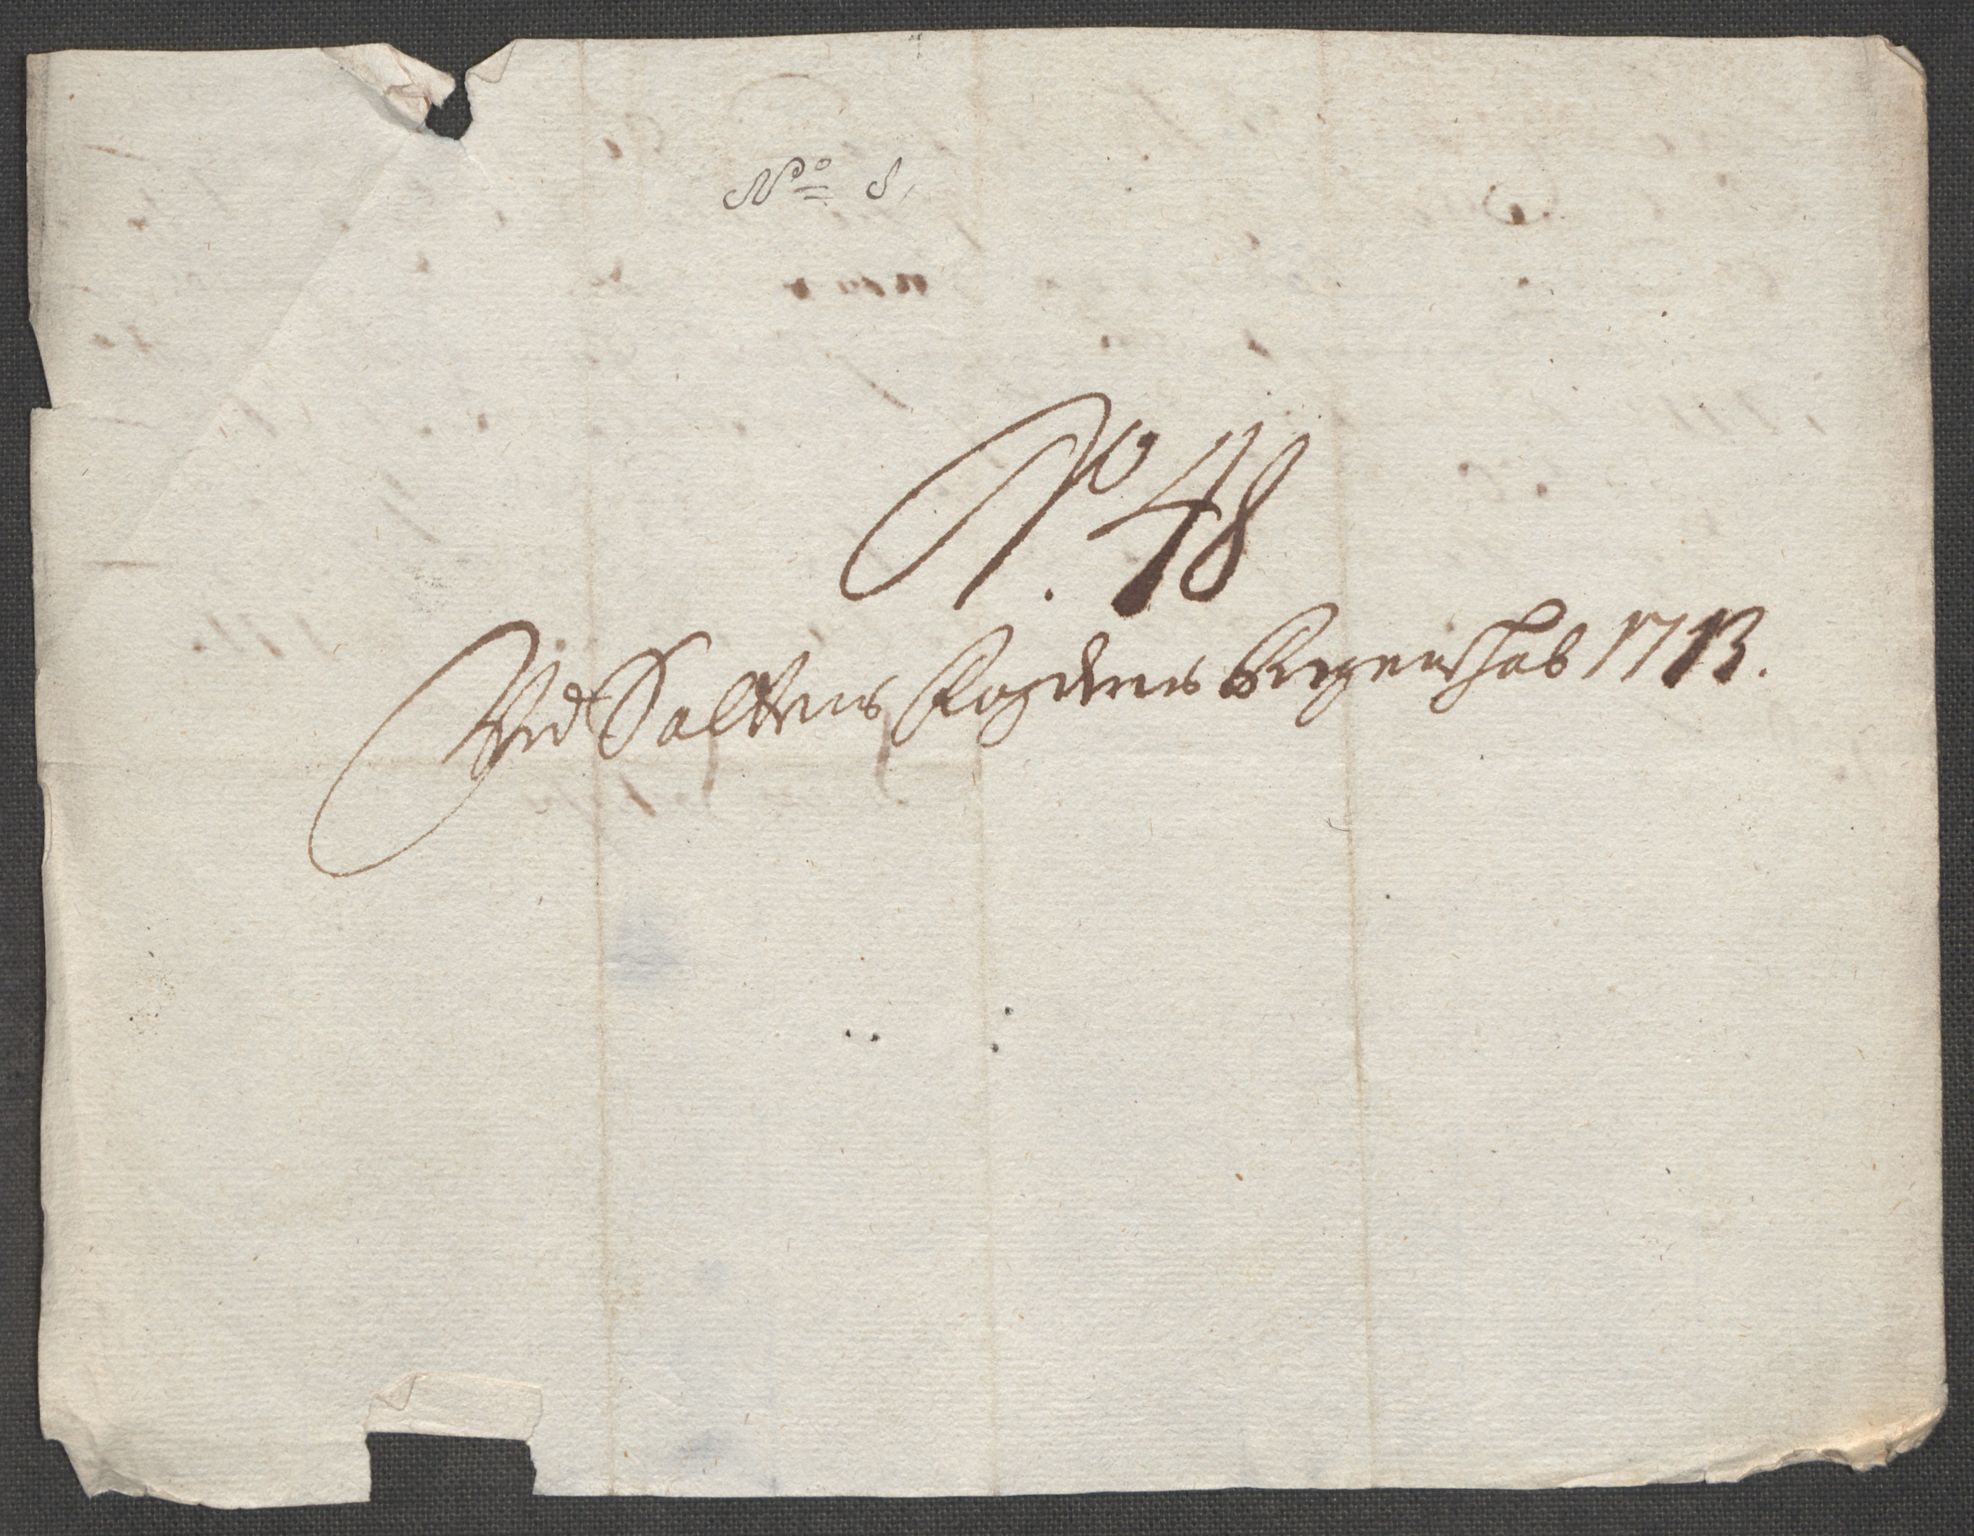 No 8,
No. 48
Ved Saltens fogderies Regenskab 1713.